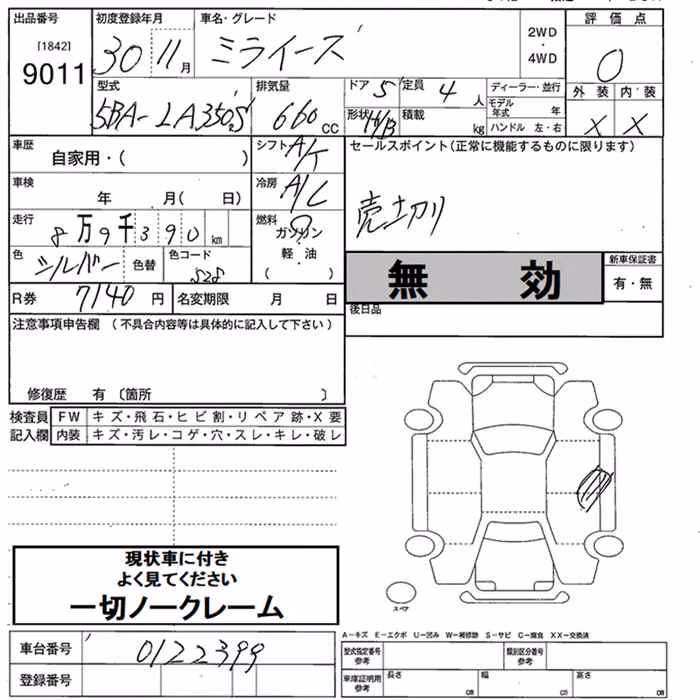 出品番号 [1842] 9011
初度登録年月 30 11月
車名・グレード ミライース
2WD・4WD
評価点 0
型式 5BA-LA350S
排気量 660cc
ドア 5 定員 4人
形状 H/B 積載 kg
ディーラー・並行
モデル年式 年
ハンドル 左・右
外装 内装
X X
車歴 自家用・( )
シフト A/T
車検 年 月( 日)
冷房 A/C
走行 8万9千390km
燃料 ガソリン 軽・油 ( )
色 シルバー 色替 色コード S28
R券 7140円 名変期限 月 日
セールスポイント(正常に機能するものに限ります)
売切り
無効
新車保証書
有・無
後日品
注意事項申告欄(不具合内容等は具体的に記入して下さい)
修復歴 有〔箇所 〕
検査員 FW キズ・飛石・ヒビ割・リペア跡・X要
記入欄 内装 キズ・汚レ・コゲ・穴・スレ・キレ・破レ
現状車に付き
よく見てください
一切ノークレーム
スペア
車台番号 0122399
登録番号
A-キズ E-エクボ U-凹み W-補修跡 S-サビ C-腐食 XX-交換済
型式指定番号 参考 類別区分番号 参考
車庫証明用 参考 長さ cm 幅 cm 高さ cm